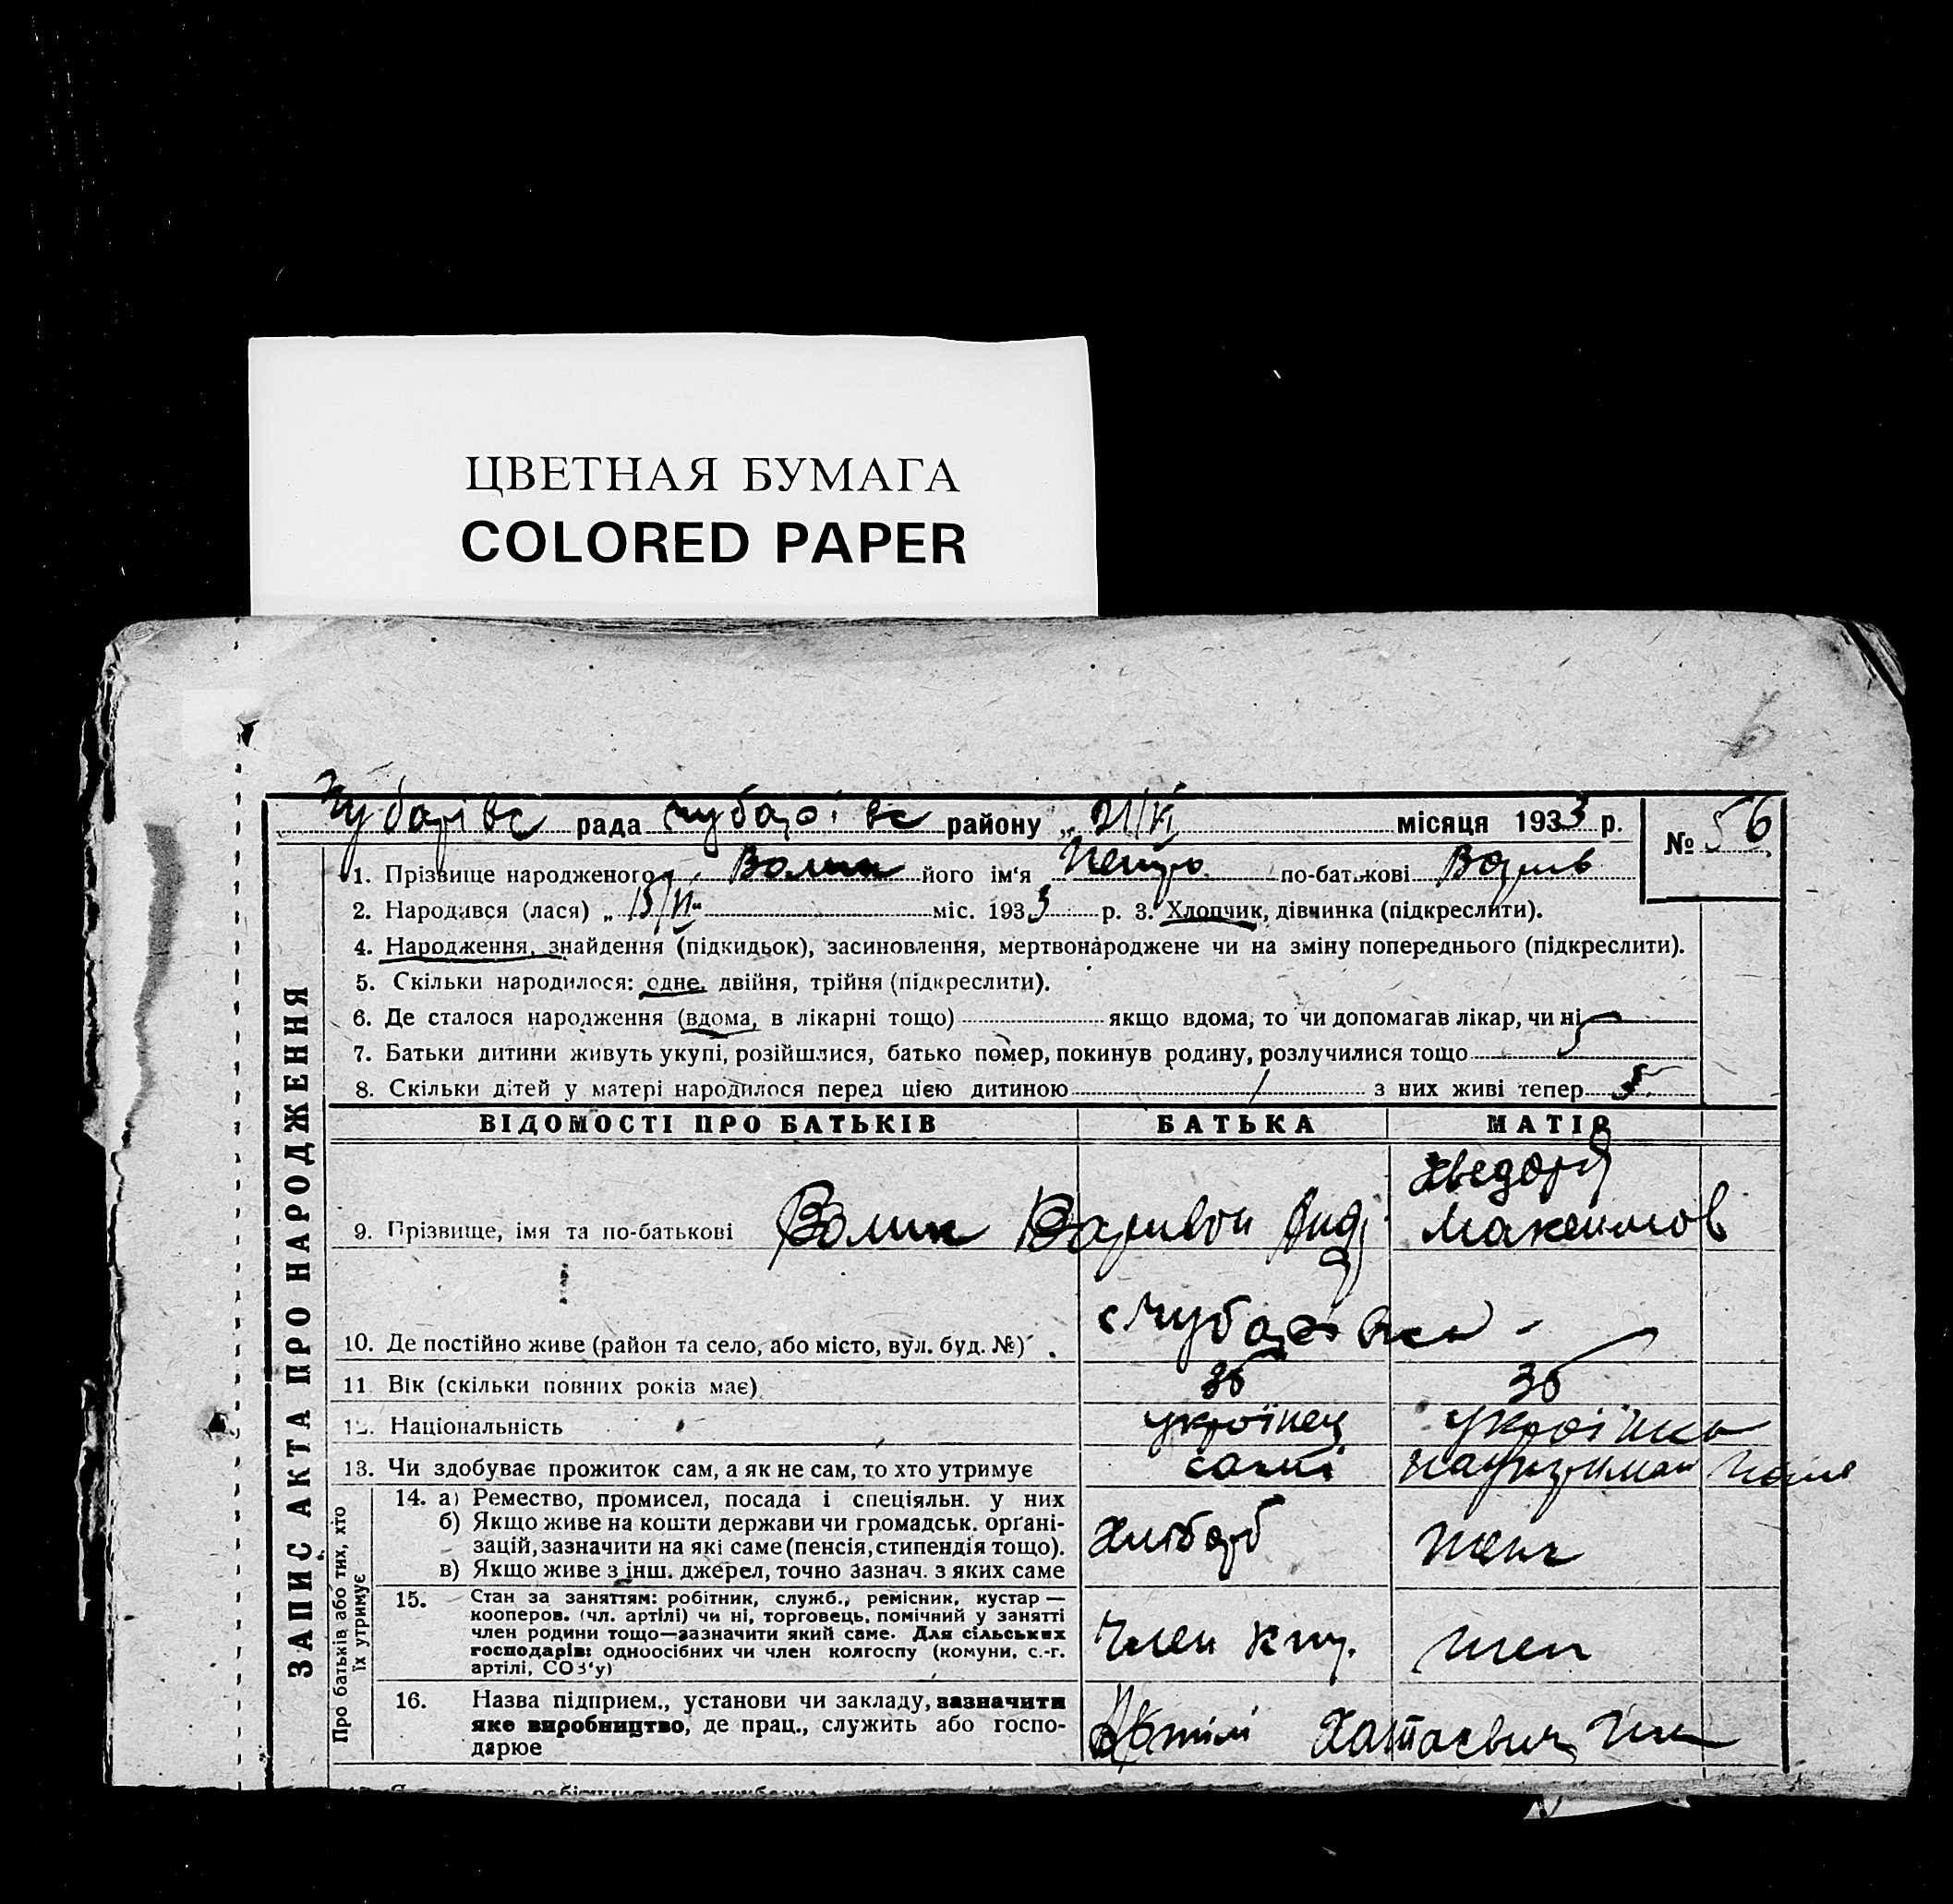 ЦВЕТНАЯ БУМАГА
COLORED PAPER
Чубарівс рада Чубарівс району „ 21/VI місяця 1933 р.
№ 56
1. Прізвище народженого Волик його ім'я Петро по-батькові
2. Народився (лася) „ 15/VI " міс. 1933 р. 3. Хлопчик, дівчинка (підкреслити).
4. Народження, знайдення (підкидьок), засиновлення, мертвонароджене чи на зміну попереднього (підкреслити).
5. Скільки народилося: одне, двійня, трійня (підкреслити).
6. Де сталося народження (вдома, в лікарні тощо) якщо вдома, то чи допомагав лікар, чи ні
7. Батьки дитини живуть укупі, розійшлися, батько помер, покинув родину, розлучилися тощо
8. Скільки дітей у матері народилося перед цією дитиною з них живі тепер
ВІДОМОСТІ ПРО БАТЬКІВ БАТЬКА МАТІР
Хведора
9. Прізвище, імя та по-батькові Волик Варивон Анд Максимов
10. Де постійно живе (район та село, або місто, вул. буд. №) с Чубарівка
11 Вік (скільки повних років має) 36 36
12. Національність українец українка
13. Чи здобуває прожиток сам, а як не сам, то хто утримує
14. а) Ремество, промисел, посада і спеціяльн. у них
б) Якщо живе на кошти держави чи громадськ. орґані-
зацій, зазначити на які саме (пенсія, стипендія тощо). Хлібороб
в) Якщо живе з інш. джерел, точно зазнач. з яких саме
15. Стан за заняттям: робітник, служб., ремісник, кустар —
кооперов. (чл. артілі) чи ні, торговець, помічний у занятті
член родини тощо—зазначити який саме. Для сільських
господарів: одноосібних чи член колгоспу (комуни, с.-г.
артілі, СОЗ'у) Член
16. Назва підприєм., установи чи закладу, зазначити
яке виробництво, де прац., служить або госпо-
дарює Артілі Хатаєвич
ЗАПИС АКТА ПРО НАРОДЖЕННЯ
Про батьків або тих, хто
їх утримує